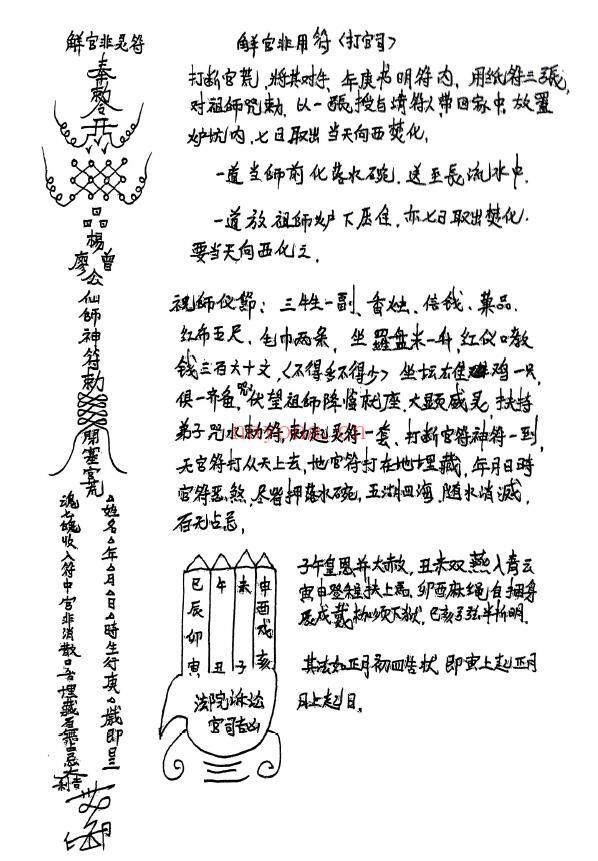 解官非灵符
奉
敕令
晶
楊
廖 曾
公
仙
師
神
符
勅
開塞官荒
△姓名△年△月△日△時生行庚△歲即日三
魂七魄收入符中官非消散口舌埋藏百無禁忌大
吉利
解官非用符〈打官司〉
打断官荒，將其对午，年庚书明符内，用纸符三張，
对祖師咒勅，以一張授与请符人带回家中，放置
炉坑内，七日取出当天向西焚化，
一道当師前化落水碗，送至長流水中，
一道放祖師炉下压住，亦七日取出焚化，
要当天向西化之，
祝師仪節：三牲一副、香烛、信钱、菓品、
红布五尺、毛巾两条，坐羅盘米一升，红仪口教
钱三百六十文，〈不得多不得少〉坐坛右雄鸡一只，
俱一齐备，伏望祖師降临就座，大显威灵，扶持
弟子咒水勅符，勅起灵符一套、打断官符神符一到，
天官符打从天上去，地官符打在地埋藏，年月日時
官符恶煞，尽皆押落水碗，五湖四海，随水消滅，
百无占忌，
子午皇恩并大赦，丑未双燕入青云
寅申登程扶上馬，卯酉麻绳自捆身
辰戌戴枷须下狱，巳亥弓弦半折明，
其法如正月初四告状，即寅上起正月
月上起日，
巳 午 未 申
辰 酉
卯 戌
寅 丑 子 亥
法院诉讼
官司吉凶